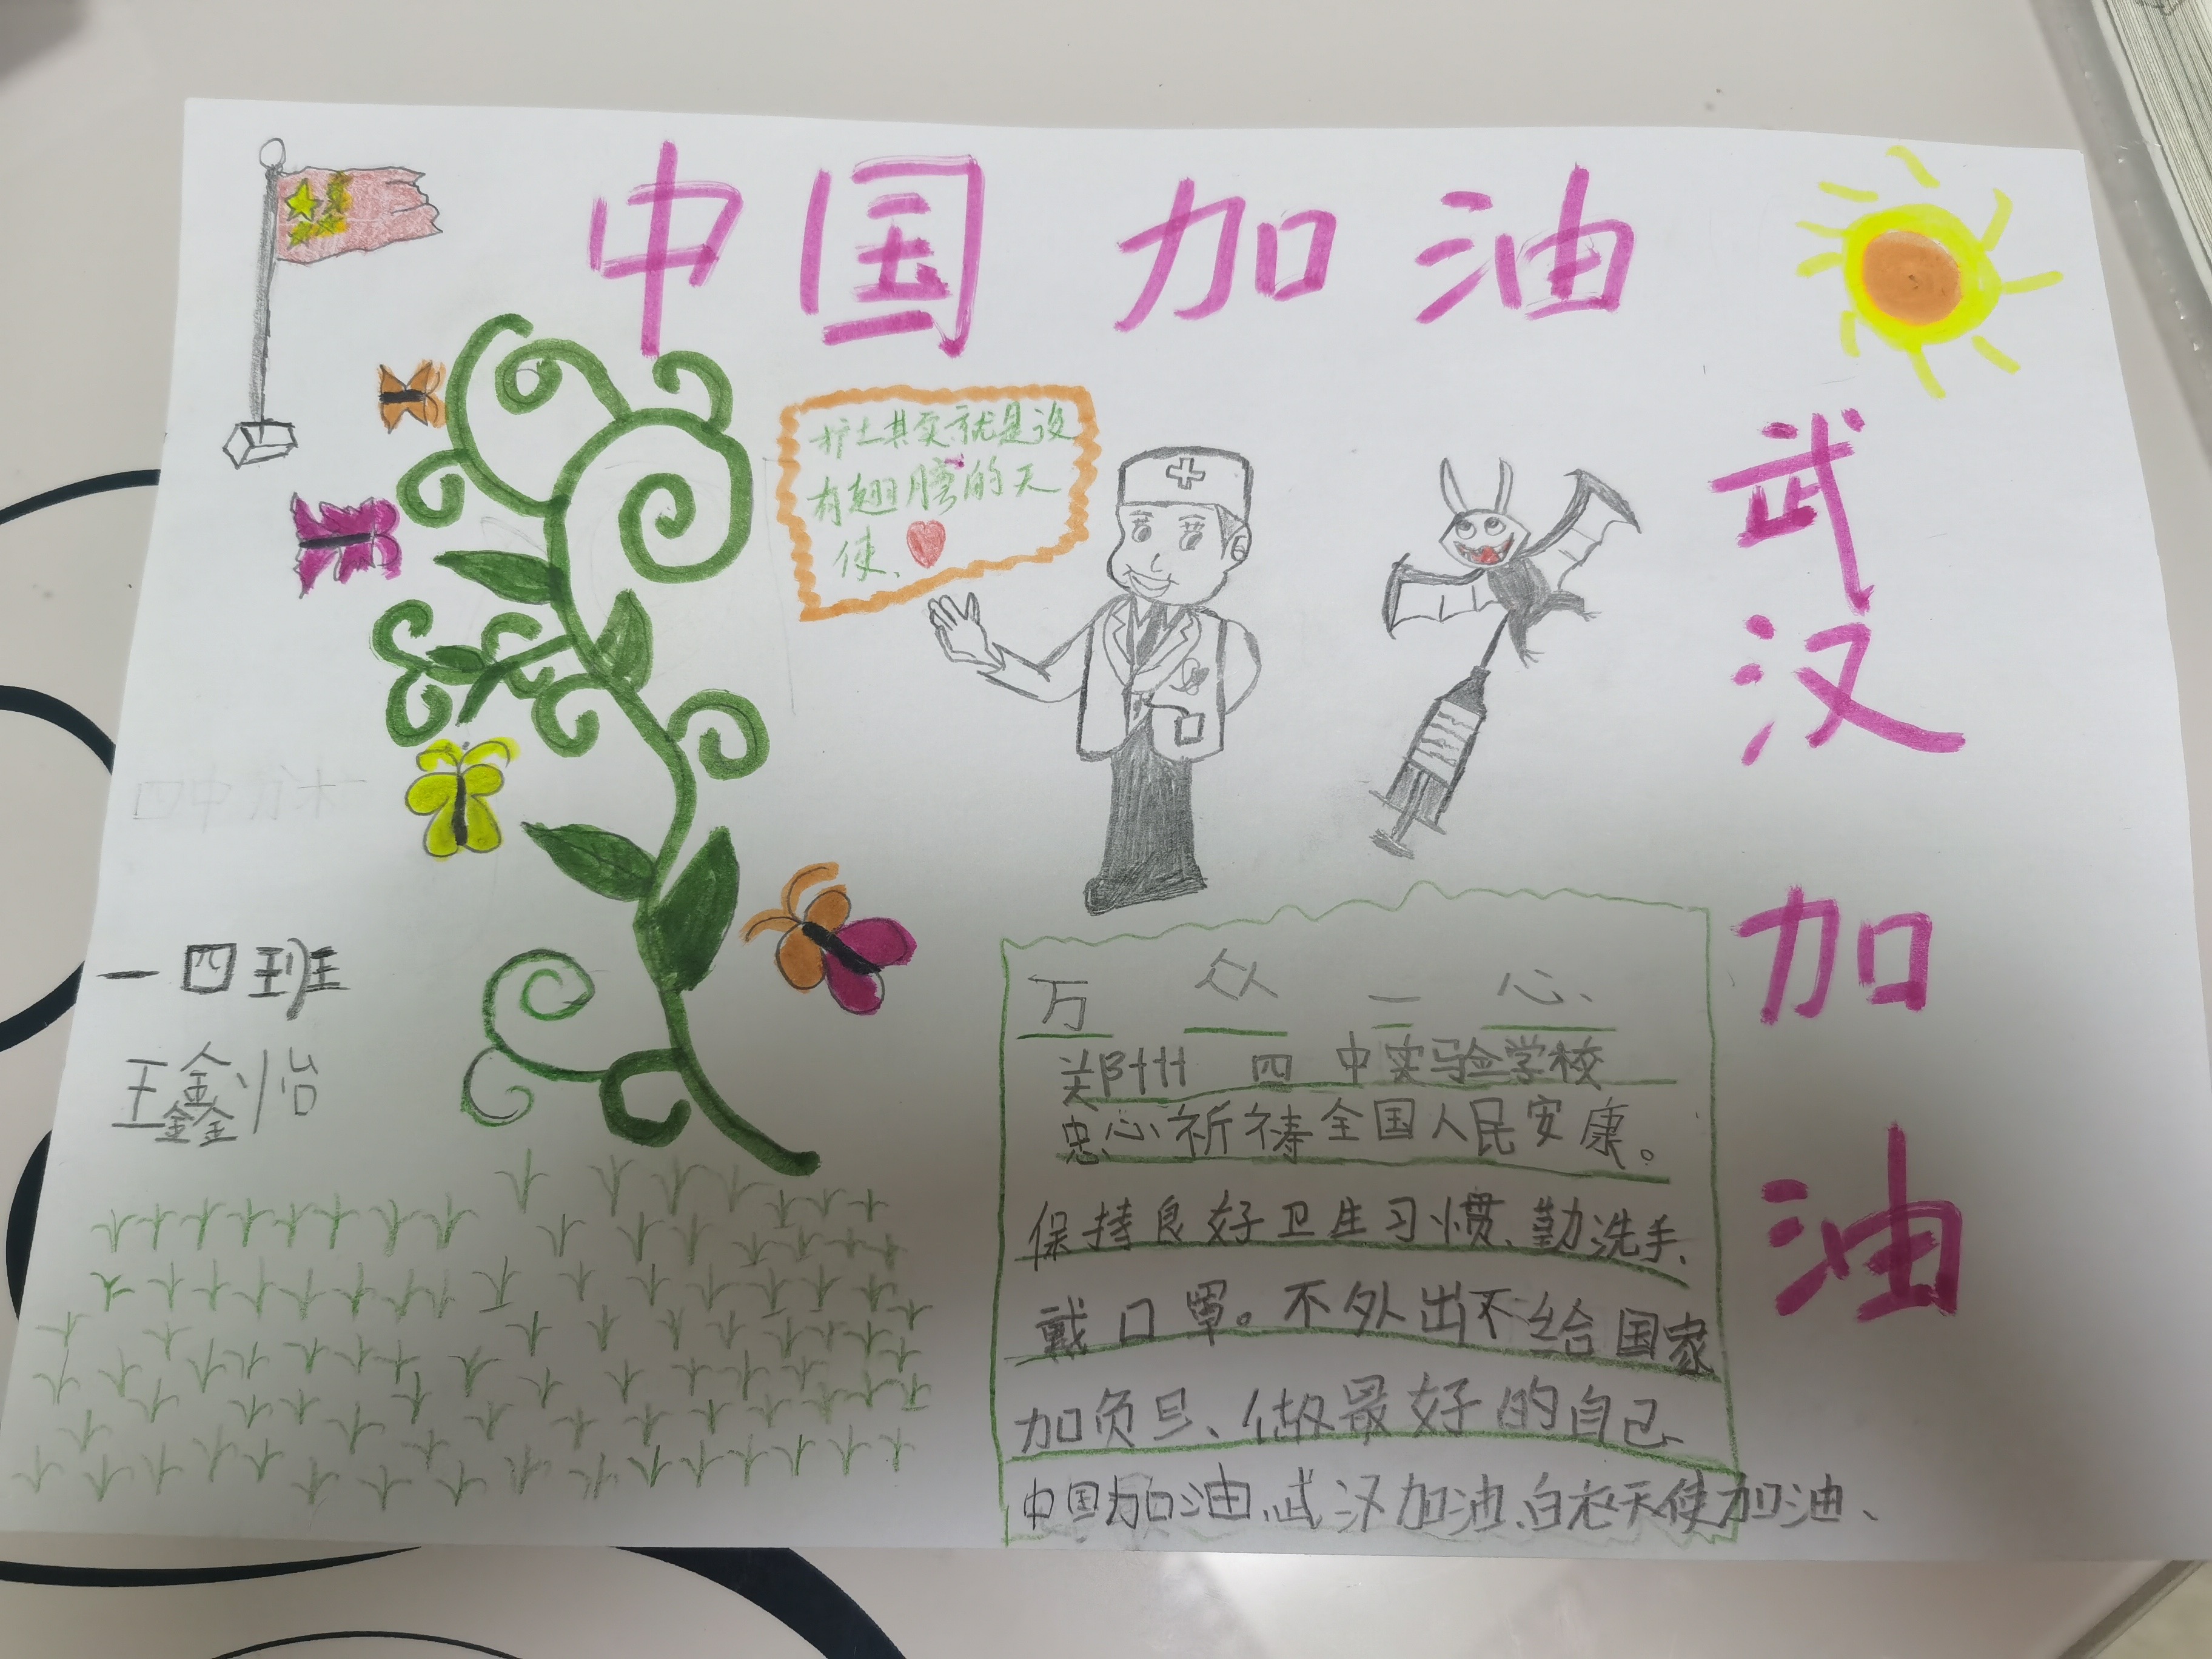 中国加油
武汉加油
护士其实就是没
有翅膀的天
使、
一四班
王鑫怡
万众一心、
郑州四中实验学校
忠心祈祷全国人民安康。
保持良好卫生习惯、勤洗手、
戴口罩。不外出不给国家
加负旦、做最好的自己
中国加油、武汉加油、白衣天使加油、